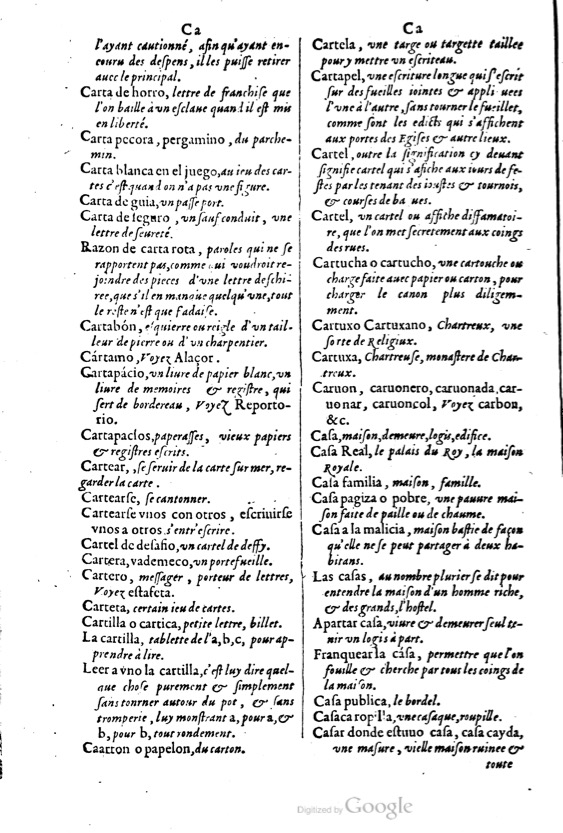 Ca
l'ayant cautionné, afin qu'ayant en-
couru des despens, il les puisse retirer
auec le principal.
Carta de horro, lettre de franchise que
l'on baille à vn esclaue quand il est mis
en liberté.
Carta pecora, pergamino, du parche-
min.
Carta blanca en el juego, au ieu des car-
tes c'est quand on n'a pas vne figure.
Carta de guia, vn passe port.
Carta de seguro, vn sauf conduit, vne
lettre de seureté.
Razon de carta rota, paroles qui ne se
rapportent pas, comme qui voudroit re-
joindre des pieces d'vne lettre deschi-
ree, que s'il en manque quelqu'vne, tout
le reste n'est que fadaise.
Cartabón, esquierre ou reigle d'vn tail-
leur de pierre ou d'vn charpentier.
Cártamo, Voyez Alaçor.
Cartapácio, vn liure de papier blanc, vn
liure de memoires & registre, qui
sert de bordereau, Voyez Reporto-
rio.
Cartapacios, paperasses, vieux papiers
& registres escrits.
Cartear, se seruir de la carte sur mer, re-
garder la carte.
Cartearse, se cantonner.
Cartearse vnos con otros, escriuirse
vnos a otros s'entr'escrire.
Cartel de desafio, vn cartel de deffy.
Cartera, vademeco, vn portefueille.
Cartero, messager, porteur de lettres,
Voyez estafeta.
Carteta, certain ieu de cartes.
Cartilla o cartica, petite lettre, billet.
La cartilla, tablette de l'a, b, c, pour ap-
prendre à lire.
Leer a vno la cartilla, c'est luy dire quel-
que chose purement & simplement
sans tourner autour du pot, & sans
tromperie, luy monstrant a, pour a, &
b, pour b, tout rondement.
Caarton o papelon, du carton.
Ca
Cartela, vne targe ou targette taillee
pour y mettre vn escriteau.
Cartapel, vne escriture longue qui s'escrit
sur des fueilles iointes & appli uees
l'vne à l'autre, sans tourner le fueillet,
comme sont les edicts qui s'affichent
aux portes des Egises & autre lieux.
Cartel, outre la signification cy deuant
signifie cartel qui s'afiche aux iours de fe-
stes par les tenant des ioustes & tournois,
& courses de ba ues.
Cartel, vn cartel ou affiche diffamatoi-
re, que l'on met secretement aux coings
des rues.
Cartucha o cartucho, vne cartouche ou
charge faite auec papier ou carton, pour
charger le canon plus diligem-
ment.
Cartuxo Cartuxano, Chartreux, vne
sorte de Religiux.
Cartuxa, Chartreuse, monastere de Char-
treux.
Caruon, caruonero, caruonada, car-
uonar, caruoncol, Voyez carbon,
&c.
Casa, maison, demeure, logis, edifice.
Casa Real, le palais du Roy, la maison
Royale.
Casa familia, maison, famille.
Casa pagiza o pobre, vne pauure mai-
son faite de paille ou de chaume.
Casa a la malicia, maison bastie de façon
qu'elle ne se peut partager à deux ha-
bitans.
Las casas, au nombre plurier se dit pour
entendre la maison d'vn homme riche,
& des grands, l'hostel.
Apartar casa, viure & demeurer seul te-
nir vn logis à part.
Franquear la cása, permettre que l'on
fouille & cherche par tous les coings de
la maison.
Casa publica, le bordel.
Casaca ropilla, vne casaque, roupille.
Casar donde estuuo casa, casa cayda,
vne masure, vielle maison ruinee &
toute
Digitized by Google